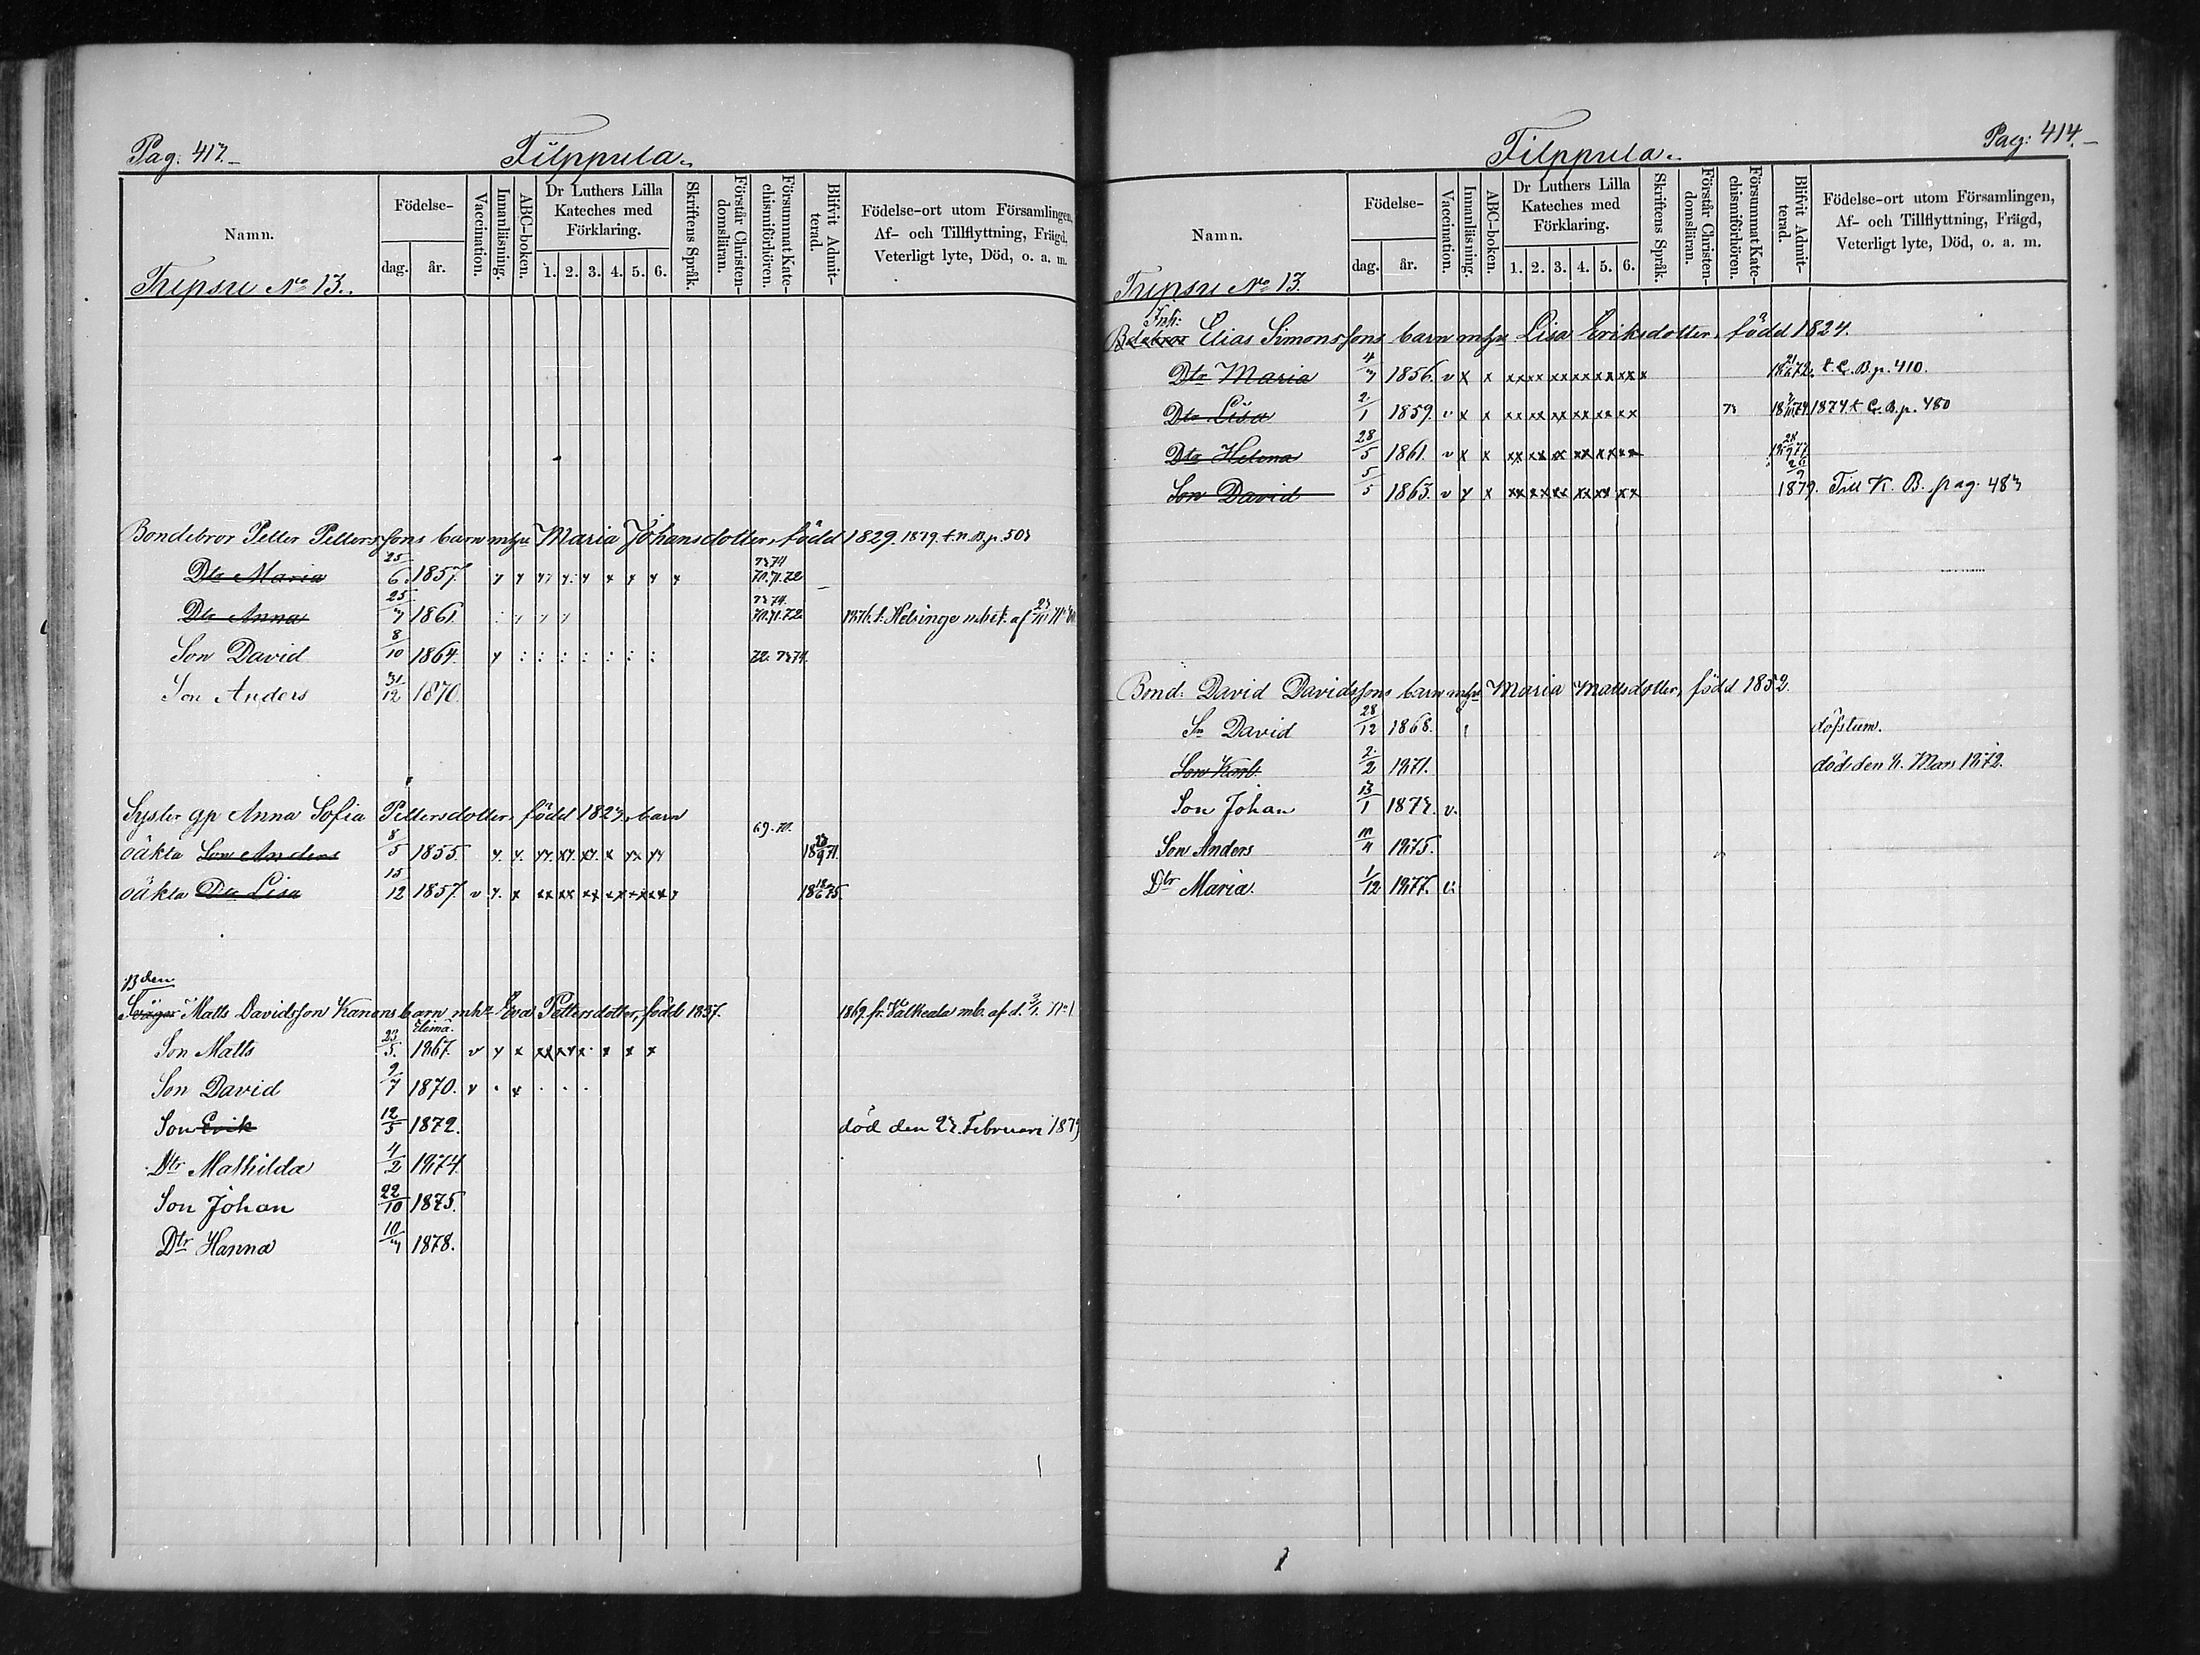 Pag. 413.
Filppula.
Namn.
Födelse-
dag.
år.
Vaccination.
Innanläsning.
ABC-boken.
Dr Luthers Lilla
Kateches med
Förklaring.
1. 2. 3. 4. 5. 6.
Skriftens Språk.
Förstår Christen-
domsläran.
Försummat Kate-
chismiförhören.
Blifvit Admit-
terad.
Födelse-ort utom Församlingen,
Af- och Tillflyttning, Frägd,
Veterligt lyte, Död, o. a. m.
No 13.
Bondebror Petter Petterssons barn mhu Maria Johansdotter, född 1829. 1879.
Dtr Maria 25/6 1857. 73 74 70. 71. 72
Dtr Anna 25/7 1861 73 74. 70. 71. 72. 1876. t. Helsinge m. bet. af
Son David 8/10 1864. 72. 73 74.
Son Anders 31/12 1870.
Syster gp Anna Sofia Pettersdotter, född 1823, barn
69. 70.
oäkta Son Anders 8/5 1855. 1871.
oäkta Dtr Lisa 15/12 1857. v x x 1875.
Bden
Svåger Matts Davidsson Kanons barn mhu Eva Pettersdotter, född 1837. 1869. fr. Valkeala mb. af d.
Elimä
Son Matts 23/5. 1867. v
Son David 9/7 1870. v
Son Erik 12/5 1872. död den 23. Februari 1873
Dtr Mathilda 4/2 1874.
Son Johan 22/10 1875.
Dtr Hanna 10/7 1878.
Filppula.
Pag: 414.
Namn.
Födelse-
dag.
år.
Vaccination.
Innanläsning.
ABC-boken.
Dr Luthers Lilla
Kateches med
Förklaring.
1. 2. 3. 4. 5. 6.
Skriftens Språk.
Förstår Christen-
domsläran.
Försummat Kate-
chismiförhören.
Blifvit Admit-
terad.
Födelse-ort utom Församlingen,
Af- och Tillflyttning, Frägd,
Veterligt lyte, Död, o. a. m.
No 13.
Inh:
Bdebror Elias Simonssons barn mhu Lisa Eriksdotter, född 1824.
Dtr Maria 4/7 1856. v x x 1872. t. C. B. p. 410.
Dtr Lisa 2/1 1859. v x x 73 1874. 1874. t C. B. p. 480
Dtr Helena 28/5 1861. v x x 1877.
Son David 5/5 1863. v x x 26/9 1879. Till K. B. pag. 483
Bond: David Davidssons barn mhu Maria Mattsdotter, född 1852.
Sn David 28/12 1868. döfstum.
Son Karl. 2/2 1871. död den 8. Mars 1872.
Son Johan 13/1 1873. v.
Son Anders 1875.
Dtr Maria. 1/12 1877. v.